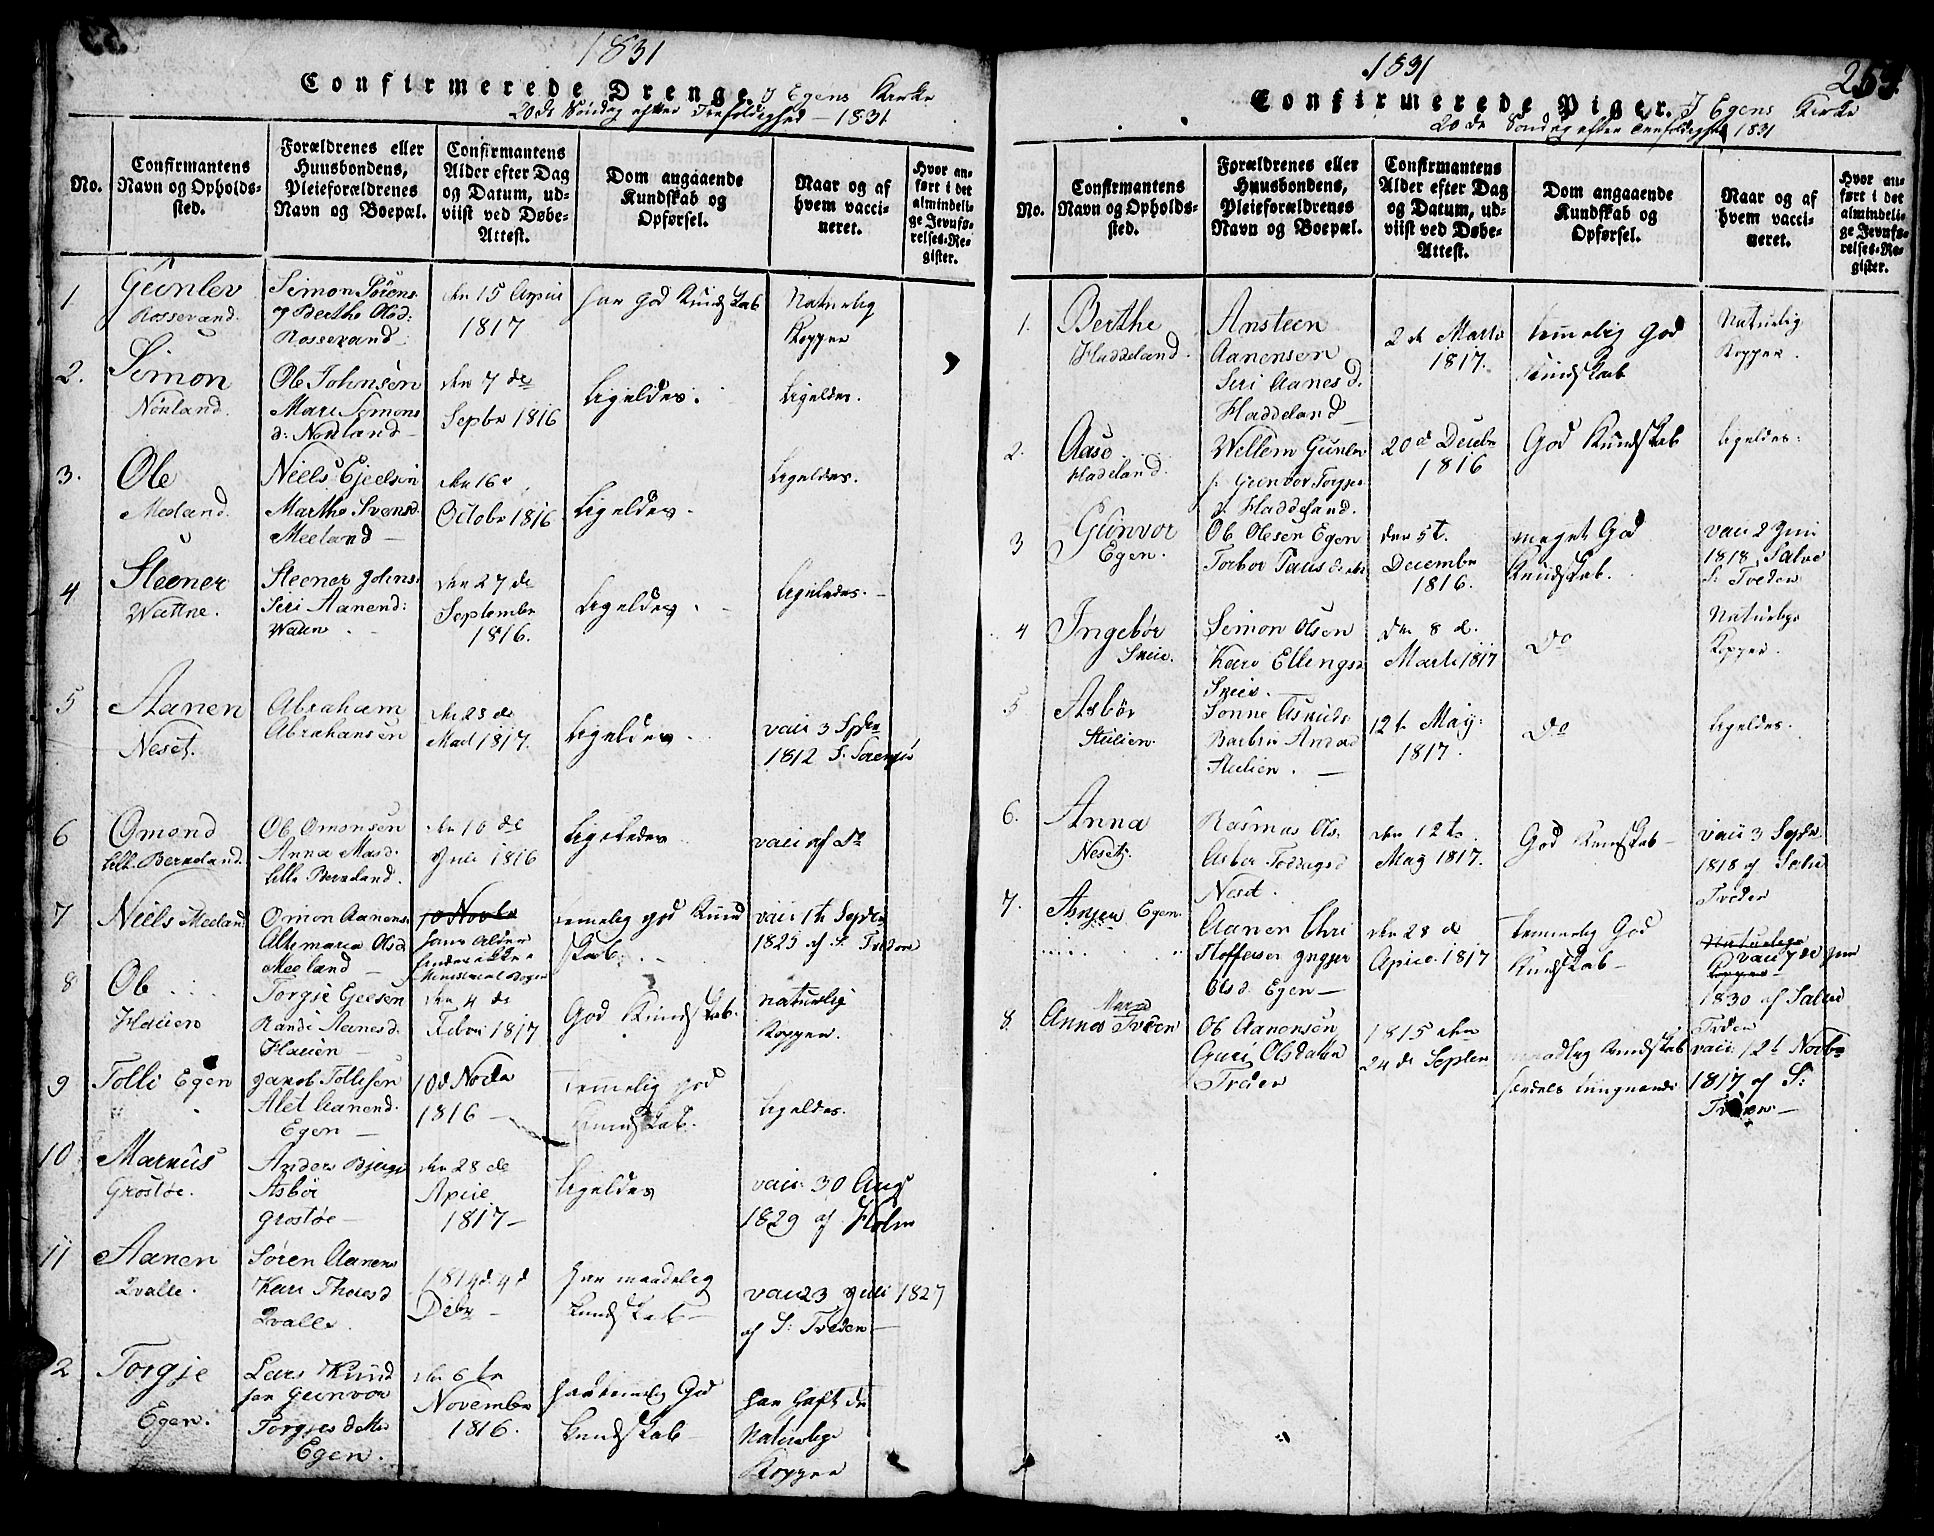 1831
Confirmerede Drenge. I Egens Kirke
20de Søndag efter Trefoldighed - 1831
No.
Confirmantens
Navn og Opholds-
sted.
Forældrenes eller
Huusbondens,
Pleieforældrenes
Navn og Boepæl.
Confirmantens
Alder efter Dag
og Datum, ud-
viist ved Døbe-
Attest.
Dom angaaende
Kundskab og
Opførsel.
Naar og af
hvem vacci-
neret.
Hvor an-
ført i det
almindeli-
ge Jevnfø-
relses-Re-
gister.
1
Gunlev
Rossevand.
Simon Sørens.
og Berthe Olsd:
Rossevand
den 15 April
1817
har God Kundskab
Naturlig
Kopper
2.
Simon
Nonland.
Ole Johnsen
Mari Simons
d: Nonland -
den 7 de
Septbr 1816
Ligeledes.
Ligeledes.
3.
Ole
Meeland.
Niels Ejeelsen
Marthe Svensd.
Meeland -
den 16
Octobr 1816
Ligeledes.
Ligeledes.
4
Steener
Wattne.
Steener Johns:
Siri Aanend:
Waten
den 27 de
Septembr
1816.
Ligeledes
Ligeledes. -
5
Aanen
Neset.
Abraham
Abrahamsen
den 28 de
1817.
Ligeledes
vaci 3 Sptr
1812 S:
6
Omond
Lille Berneland.
Ole Omonsen
Anna Masd.
Lille Berneland.
den 10 de
Juli 1816
Ligeledes
vaci af Do
7
Niels Meeland
Omon Aanens.
Altemaria Olsd
Meeland -
10 Novbr
hans Alder
findes ikke
temelig god Kund
skab.
vaci 1te Septr
1825 af S: Treden
8
Ole
Hauen
Torgje Ejelsen
Randi Aanesd.
Hauen -
den 4 de
Febr. 1817
God Kundskab.
Naturlig
Kopper.
9
Tolli Egen
Jacob Tollisen
Alet Aanend.
Egen -
10d Novbr
1816 -
temelig god
Kundskab.
Ligeledes.
10
Markus
Grostøe.
Anders Bjerge
Asbør
Grostøe -
den 28 de
April
1817 -
Ligeledes
vaci 30 Aug
1829 af Holm
11
Aanen
Qvalle.
Søren Aanens
Kari Thoresd
Qvalle.
1814 d. 4 d
Debr -
har maadelig
Kundskab -
vaci 23 Juli 1827
af S: Treden -
2
Torgje
Egen.
Lars Knud
sen Gunvor
Torgjesdatter
Egen.
den 6 te
Novembr
1816.
har temelig God
Kundskab
har haft de
Naturlige
Kopper
1831
263
Confirmerede Piger. I Egens Kirke
20de Søndag efter Trefoldighed 1831
No.
Confirmantens
Navn og Opholds-
sted.
Forældrenes eller
Huusbondens,
Pleieforældrenes
Navn og Boepæl.
Confirmantens
Alder efter Dag
og Datum, ud-
viist ved Døbe-
Attest.
Dom angaaende
Kundskab og
Opførsel.
Naar og af
hvem vacci-
neret.
Hvor an-
ført i det
almindeli-
ge Jevnfø-
relses-Re-
gister.
1.
Berthe
Haddeland.
Ansteen
Aanensen
Siri Aanesd.
Haddeland -
2 de Marts
1817.
temelig God
Kundskab
Naturlig
Kopper.
2.
Aase
Hadeland.
Wellem Gunlev
s. Gunvor Torgjes
d. Haddeland.
20 d Decebr
1816
God Kundskab
Ligeledes:
3
Gunvor
Egen.
Ole Olesen Egen
Torbor
den 5t.
Decembr
1816.
meget God
Kundskab.
vaci 2 Juni
1818. Salve
S: Treden
4
Ingebor
Skeie.
Simon Olsen
Kari Ellingsd
Skeie.
den 8 d.
Marti 1817
Do
Naturlige
Kopper.
5
Asbør
Stulien.
Sønne Asknds
Barbru
Stulien. -
12 te May.
1817.
Do
Ligeledes.
6.
Anna
Neset.
Rasmus Ols.
Asber
Neset.
den 12 te
May 1817.
God Kundskab -
vaci 3 Septr.
1818 af Salve
Treden
7.
Asnjer Egen.
Aanen Chri
stoffersen Ingjer
Olsd. Egen -
den 28 de
April 1817
temmelig God
Kundskab -
Naturlige
Kopper -
vaci 7 de Jun
1830 af Salve
Treden
8.
Anna Maria Treden
Ole Aanensen
Guri Olsdatter
Treden
1815 den
24 de Septbr
maadelig Kundskab
vaci 12 t Novbr
1817 af S:
Treden -